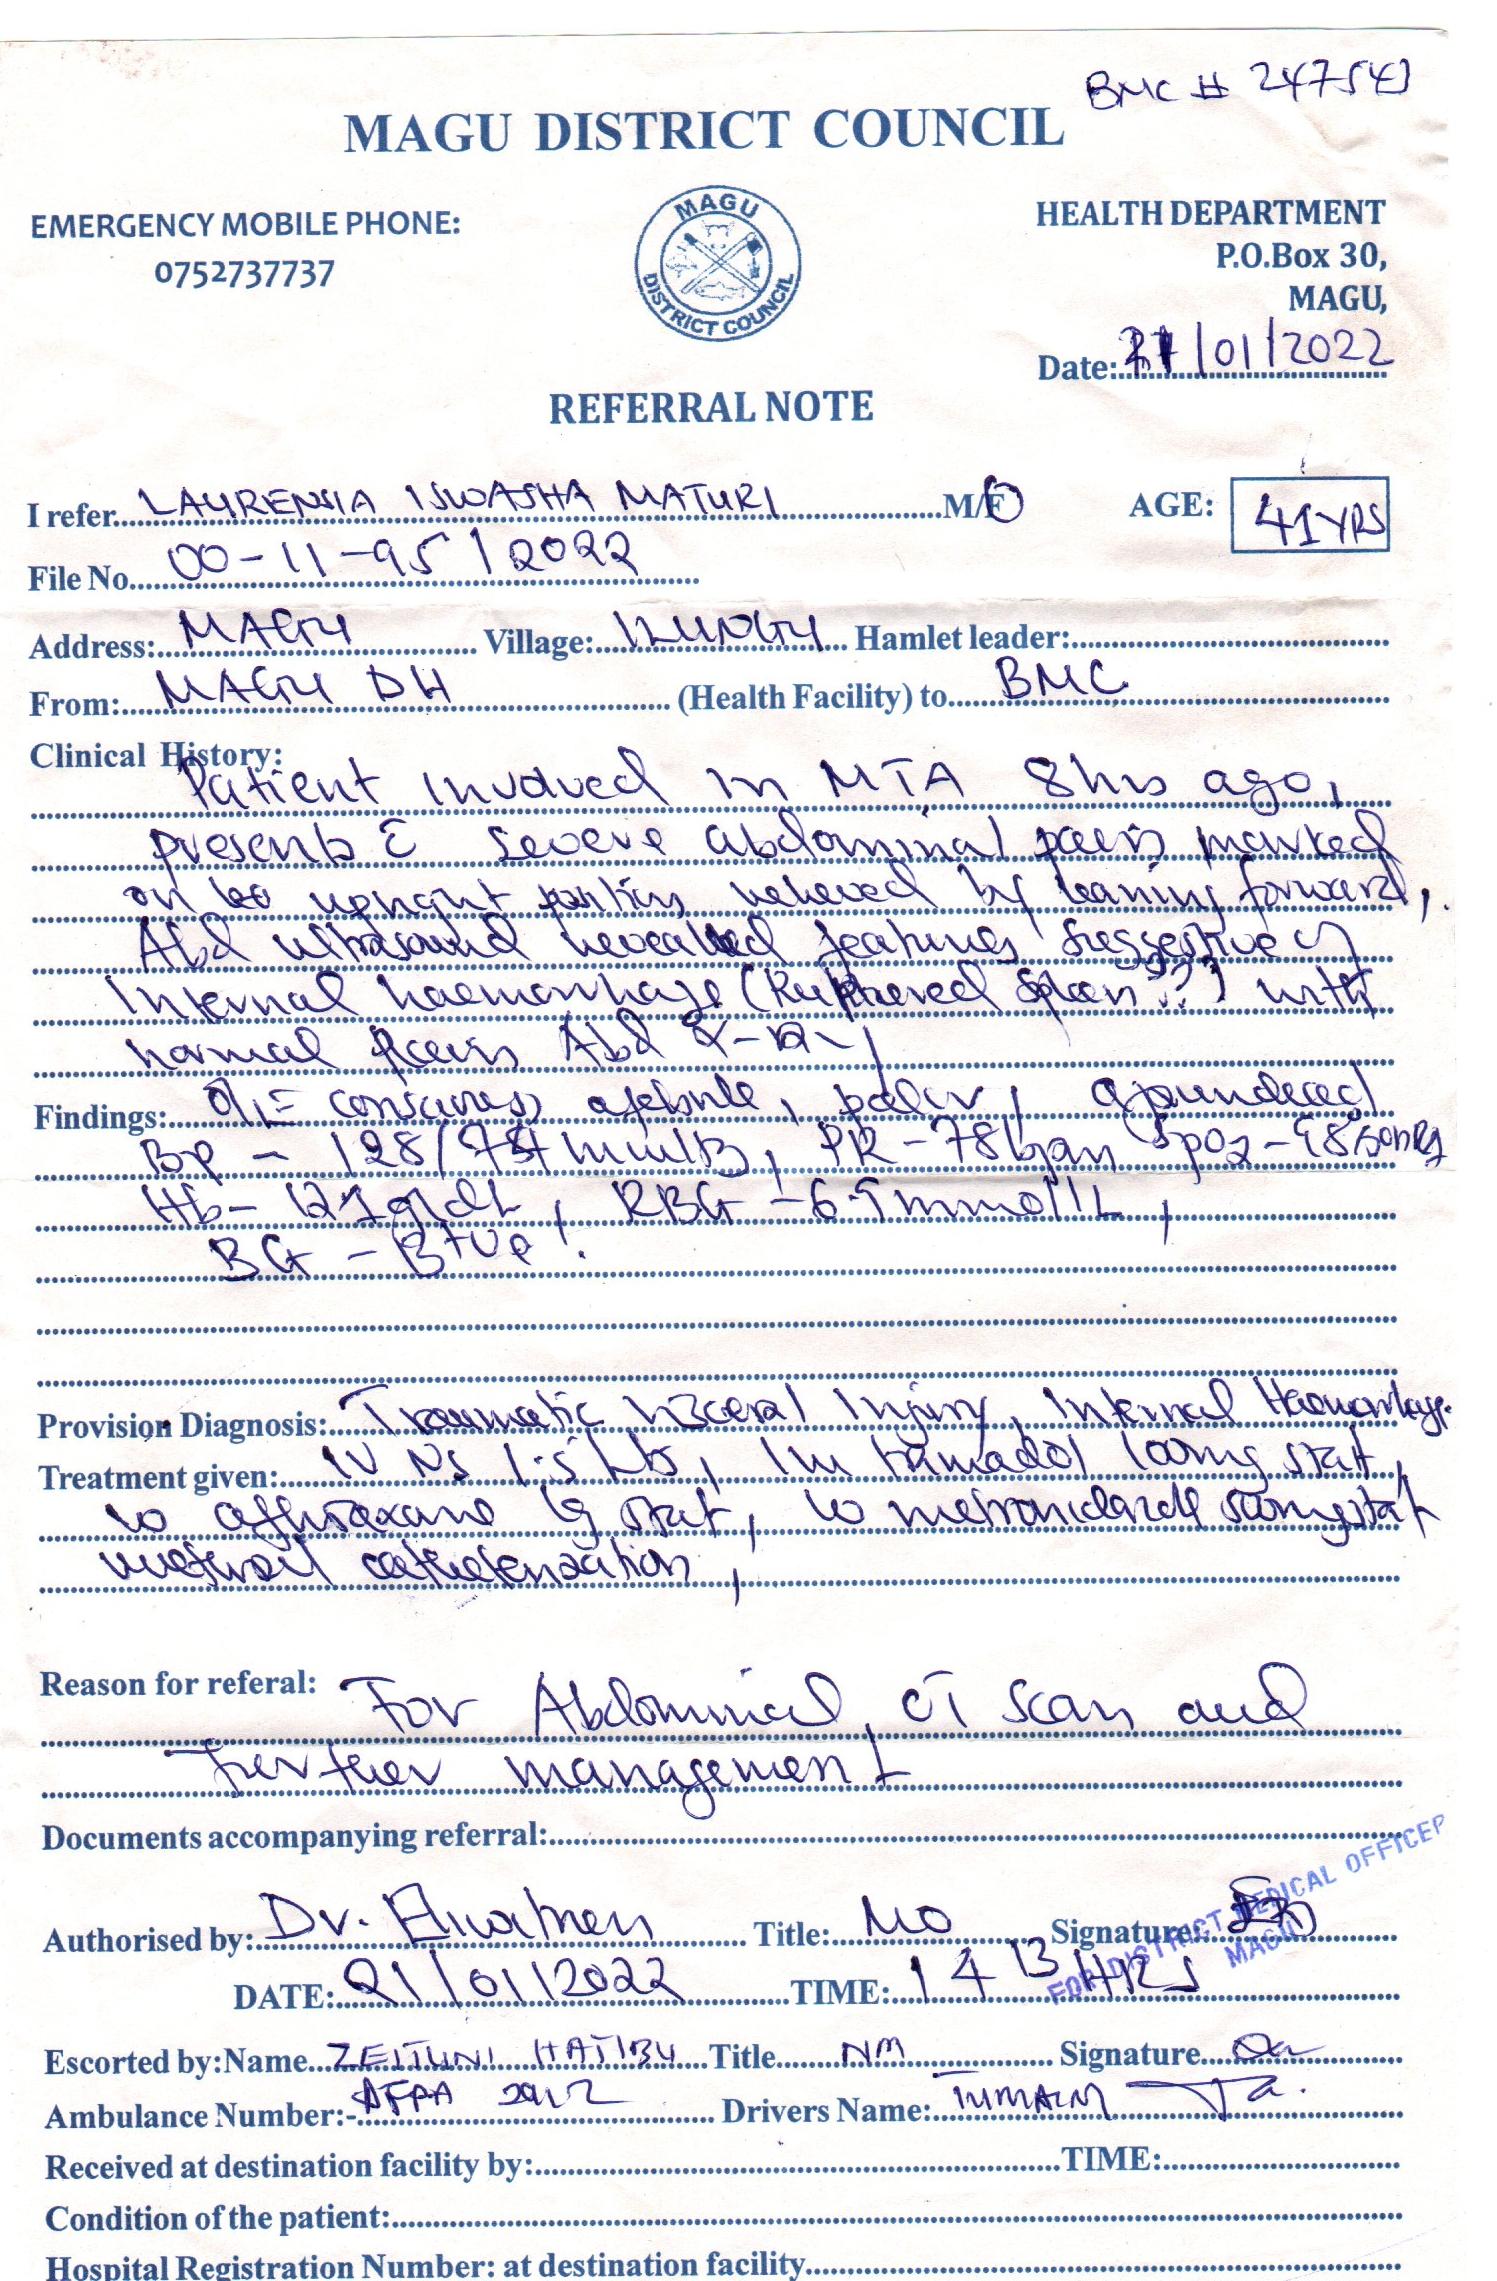 BMC # 247543
MAGU DISTRICT COUNCIL
EMERGENCY MOBILE PHONE:
0752737737
MAGU
DISTRICT COUNCIL
HEALTH DEPARTMENT
P.O.Box 30,
MAGU,
Date: 21/01/2022
REFERRAL NOTE
I refer LAURENSIA ISWASHA MATURI M/F AGE: 41YRS
File No. 00-11-95/2022
Address: MAGU Village: ILUNGU Hamlet leader:
From: MAGU DH (Health Facility) to BMC
Clinical History:
Patient involved in MTA 8hrs ago,
presents c̄ severe abdominal pain marked
on upright relieved by leaning forward,
Abd ultrasound revealed features suggestive of
Internal haemorrhage (Ruptured Spleen??) with
normal Abd X-Ray
Findings: O/E= conscious, afebrile, , 
BP - 128/ mmHg, PR - 78bpm SPO2-98%
Hb- g/dL, RBG -6.5mmol/L,
BG - B+ve!
Provision Diagnosis: Traumatic visceral Injury, Internal Haemorrhage.
Treatment given: IV NS 1.5 Lts, Im tramadol 100mg stat,
1g stat, metronidazole 500mg stat
urethral catheterization,
Reason for referal: For Abdominal, CT scan and
further management
Documents accompanying referral:
Authorised by: Dr. Title: MO Signature:
FOR DISTRICT MEDICAL OFFICER
MAGU
DATE: 21/01/2022 TIME: 1413 HRS
Escorted by:Name ZEITUNI HATIBU Title NM Signature
Ambulance Number:- DFPA Drivers Name:
Received at destination facility by: TIME:
Condition of the patient:
Hospital Registration Number: at destination facility